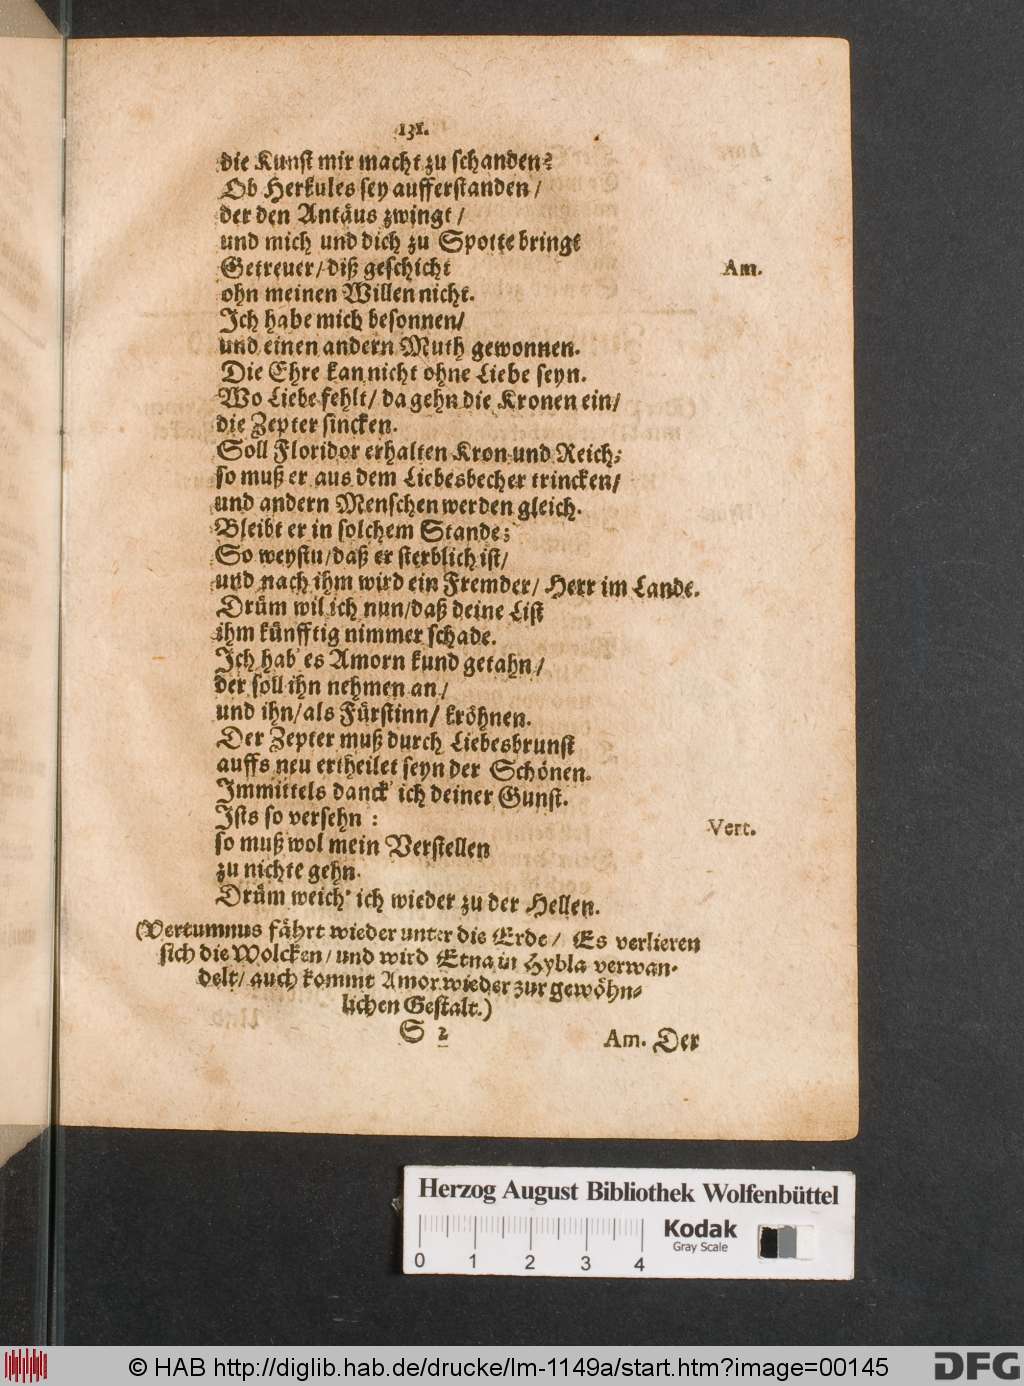 131.
die Kunst mir macht zu schanden?
Ob Herkules sey aufferstanden /
der den Antäus zwingt /
und mich und dich zu Spotte bringt
Getreuer / diß geschicht Am.
ohn meinen Willen nicht.
Ich habe mich besonnen /
und einen andern Muth gewonnen.
Die Ehre kan nicht ohne Liebe seyn.
Wo Liebe fehlt / da gehn die Kronen ein /
die Zepter sincken.
Soll Floridor erhalten Kron und Reich;
so muß er aus dem Liebesbecher trincken /
und andern Menschen werden gleich.
Bleibt er in solchem Stande;
So weystu / daß er sterblich ist /
und nach ihm wird ein Fremder / Herr im Lande.
Drüm wil ich nun / daß deine List
ihm künfftig nimmer schade.
Ich hab' es Amorn kund getahn /
der soll ihn nehmen an /
und ihn / als Fürstinn / kröhnen.
Der Zepter muß durch Liebesbrunst
auffs neu ertheilet seyn der Schönen.
Immittels danck' ich deiner Gunst.
Ists so versehn : Vert.
so muß wol mein Verstellen
zu nichte gehn.
Drüm weich' ich wieder zu der Hellen.
(Vertumnus fährt wieder unter die Erde / Es verlieren
sich die Wolcken / und wird Etna in Hybla verwan-
delt / auch kommt Amor wieder zur gewöhn-
lichen Gestalt.)
S 2 Am. Der
Herzog August Bibliothek Wolfenbüttel
Kodak
Gray Scale
0 1 2 3 4
© HAB http://diglib.hab.de/drucke/lm-1149a/start.htm?image=00145
DFG